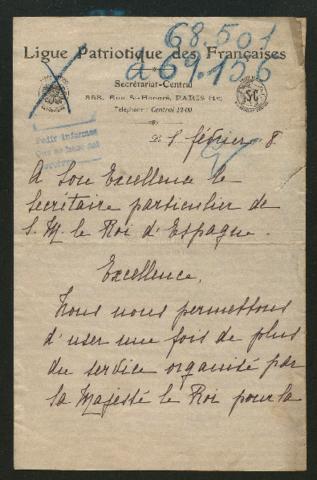 68.501
à 69.135
Ligue Patriotique des Françaises
Secrétariat-Central
368, Rue St-Honoré, PARIS (1er)
Téléphone : Central
Pedir informes
février 8
A Son Excellence le
Secrétaire particulier de
S. M. le Roi d'Espagne.
Excellence,
Nous nous permettons
d'user une fois de plus
du service organisé par
Sa Majesté le Roi pour la